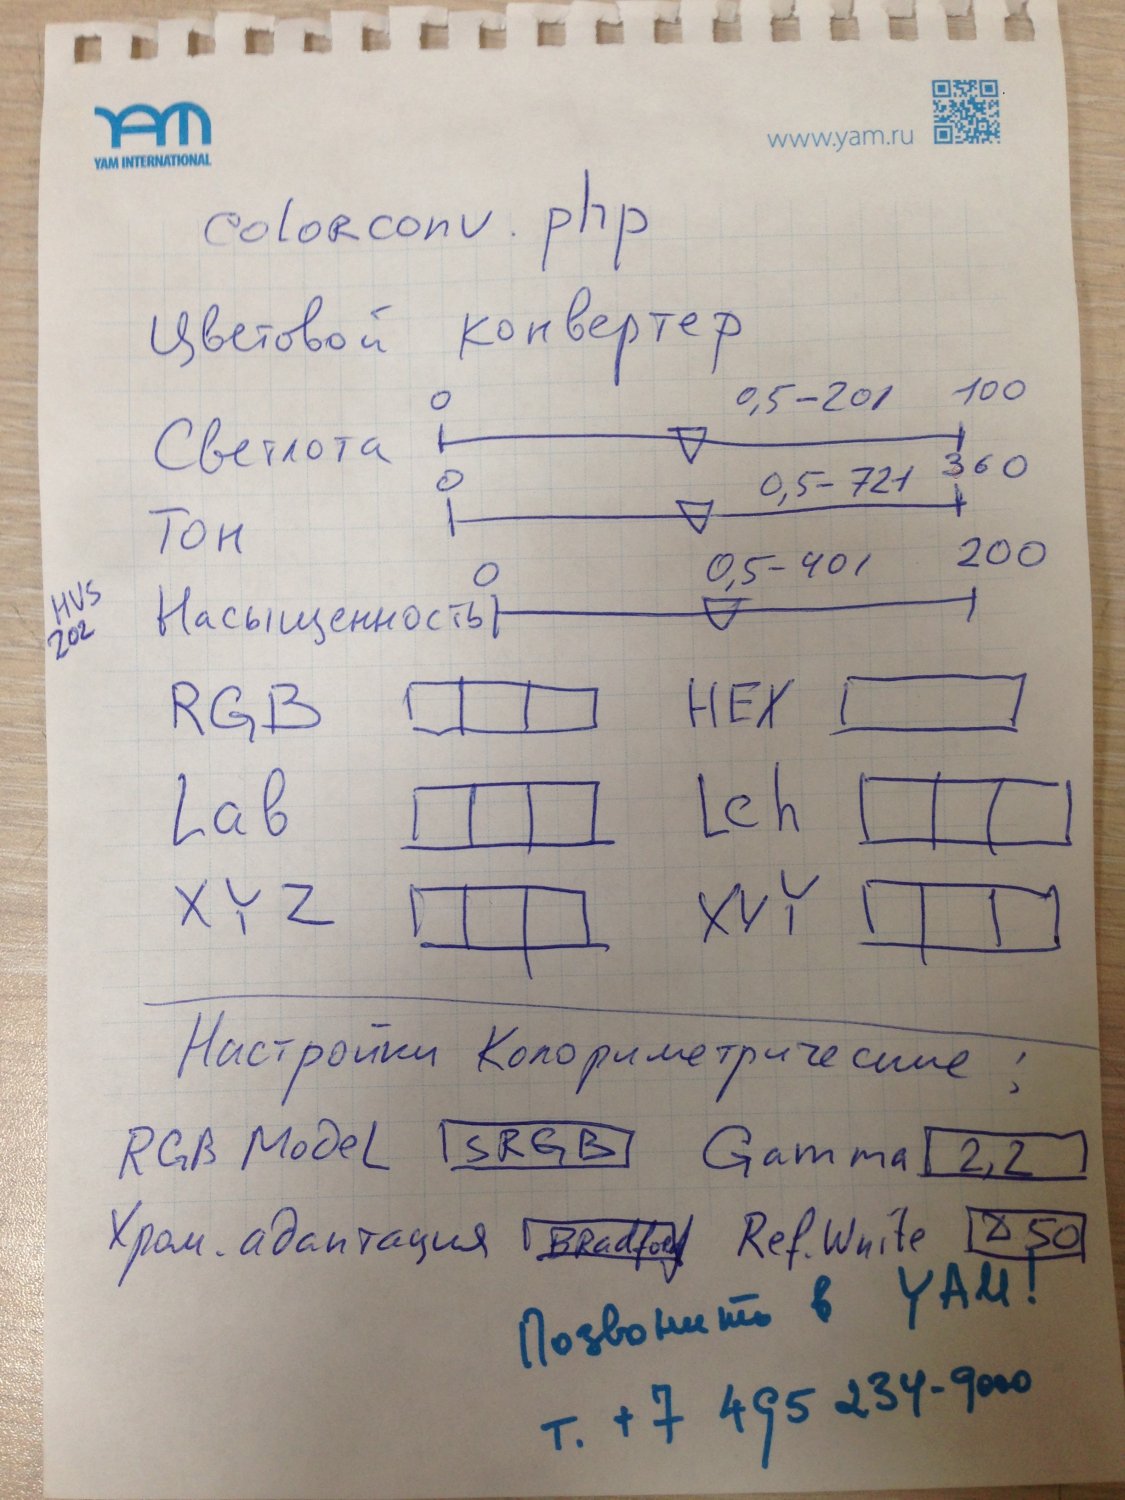 YAM
YAM INTERNATIONAL
www.yam.ru
colorconv.php
Цветовой конвертер
Светлота 0 0,5-201 100
Тон 0 0,5-721 360
Насыщенность 0 0,5-401 200
HVS
202
RGB HEX
Lab Lch
XYZ XYY
Настройки Колориметрические:
RGB Model sRGB Gamma 2,2
Хром. адаптация Bradford Ref. White D50
Позвонить в YAM!
т. +7 495 234-9000